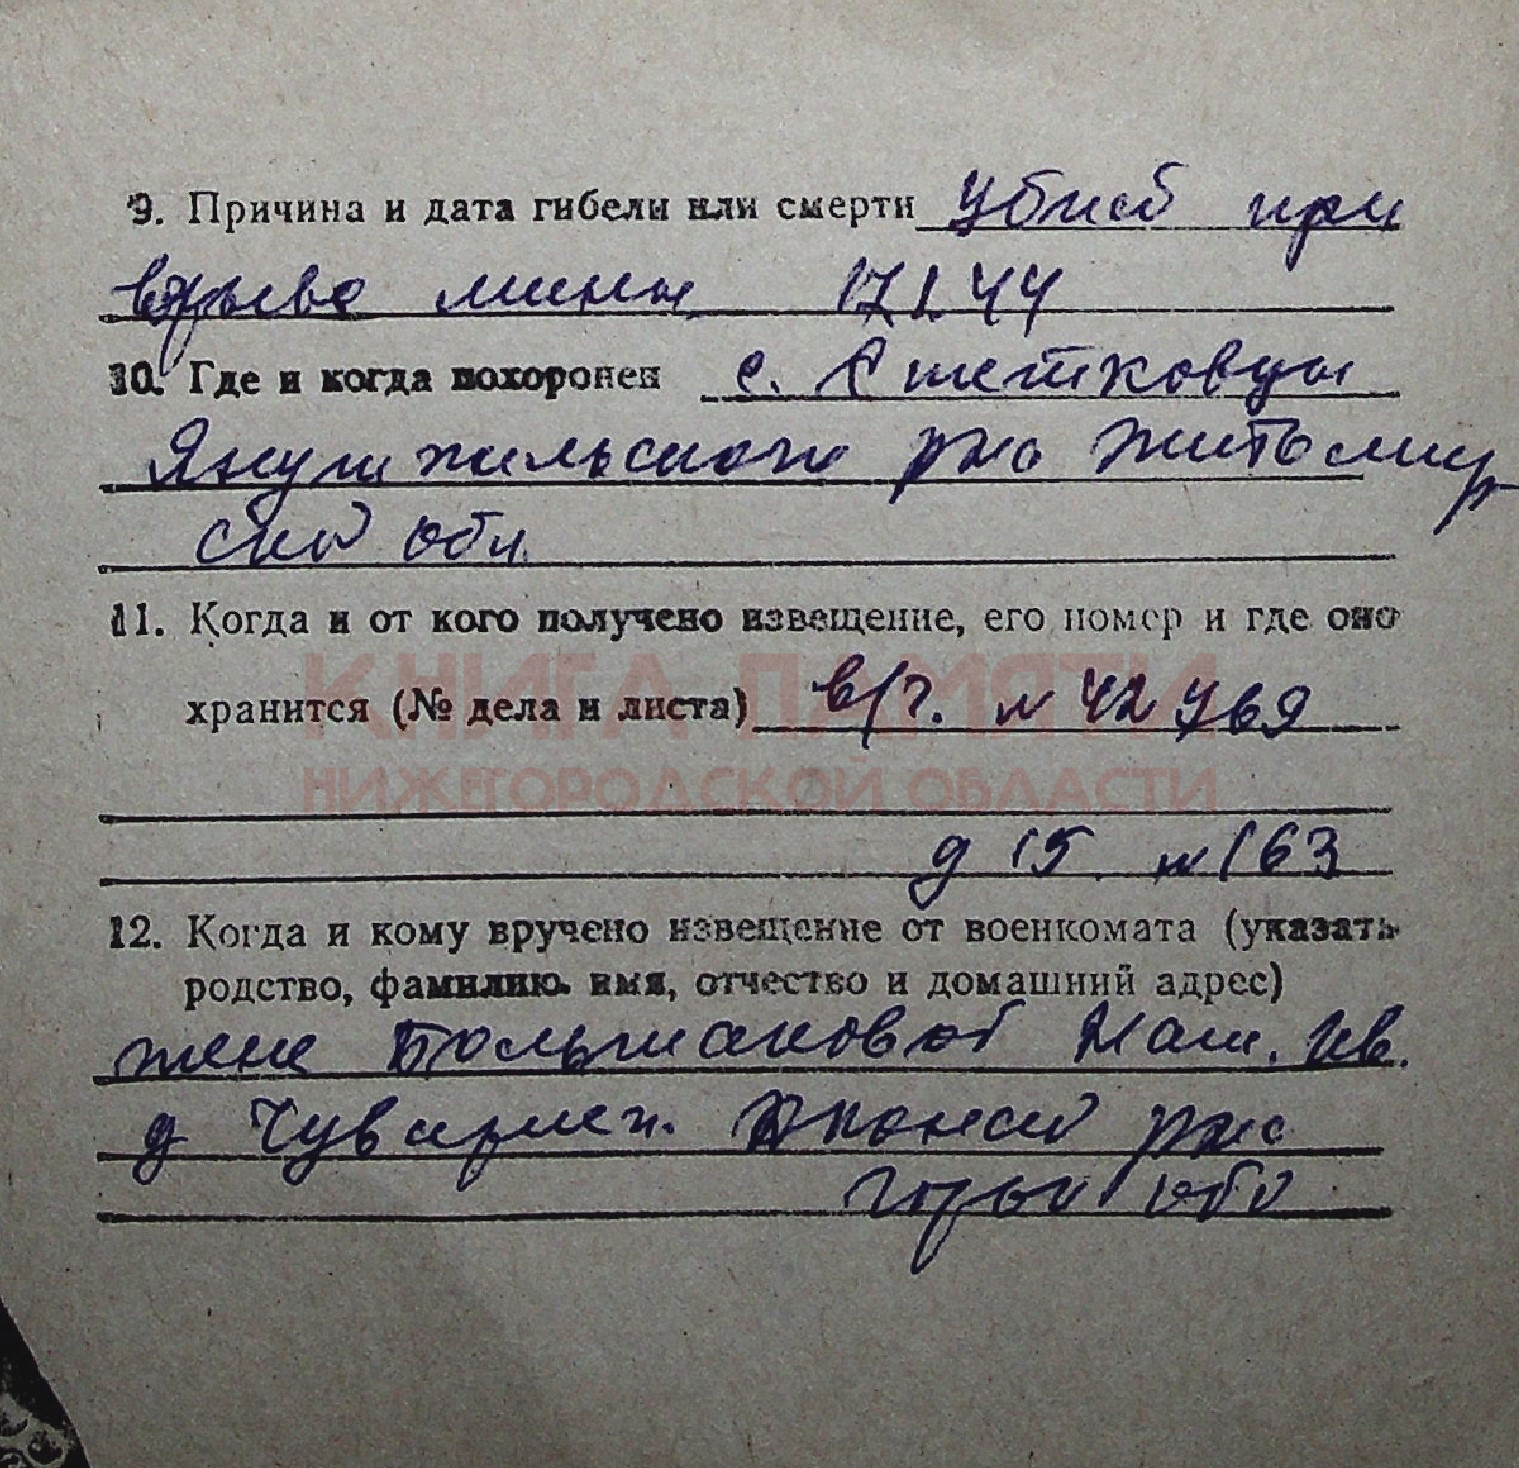 9. Причина и дата гибели или смерти убит при
взрыве мины 17.1.44
10. Где и когда похоронен с.
Янушпильского р-на Житомир
ской обл.
11. Когда и от кого получено извещение, его номер и где оно
КНИГА ПАМЯТИ
хранится (№ дела и листа) в/ч. №
НИЖЕГОРОДСКОЙ ОБЛАСТИ
д 15 № 163
12. Когда и кому вручено извещение от военкомата (указать
родство, фамилию. имя, отчество и домашний адрес)
жене Большаковой Ив.
д р-на
Горьк обл